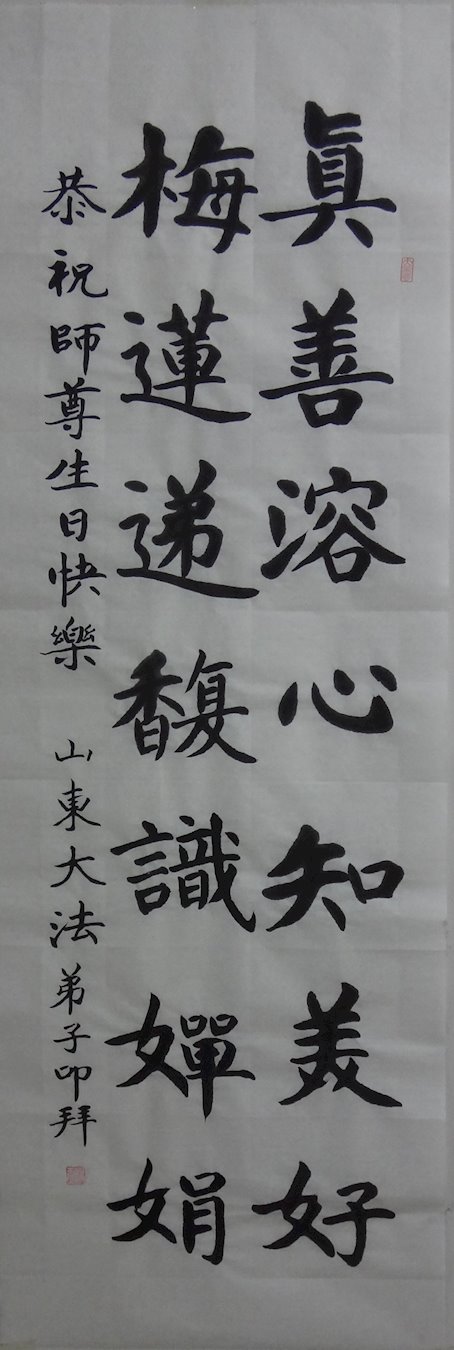 真善溶心知美好
梅蓮递馥識嬋娟
恭祝師尊生日快樂 山東大法弟子叩拜